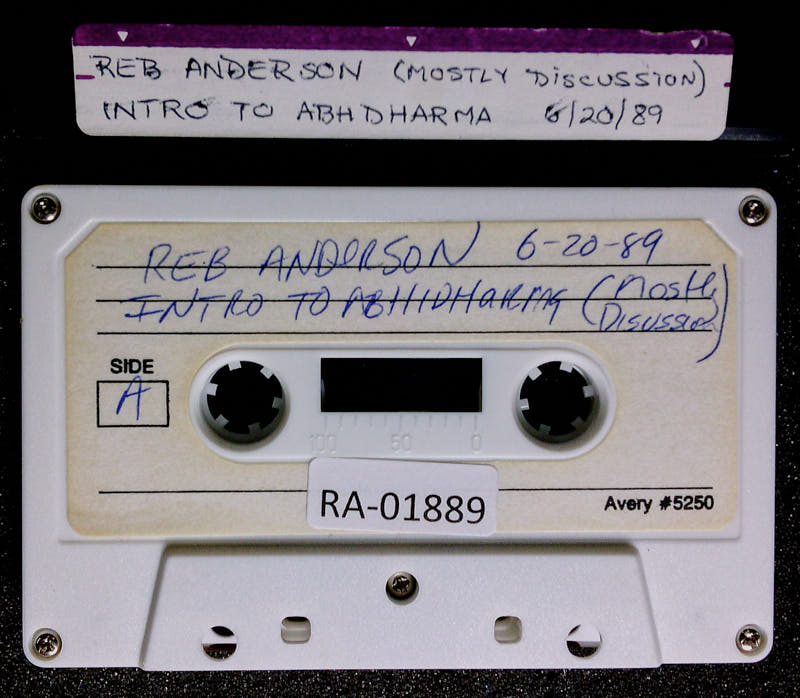 REB ANDERSON (MOSTLY DISCUSSION)
INTRO TO ABHDHARMA 6/20/89
REB ANDERSON 6-20-89
INTRO TO ABHIDHARMA (MOSTLY
DISUSSION)
SIDE
A
100 50 0
RA-01889
Avery #5250